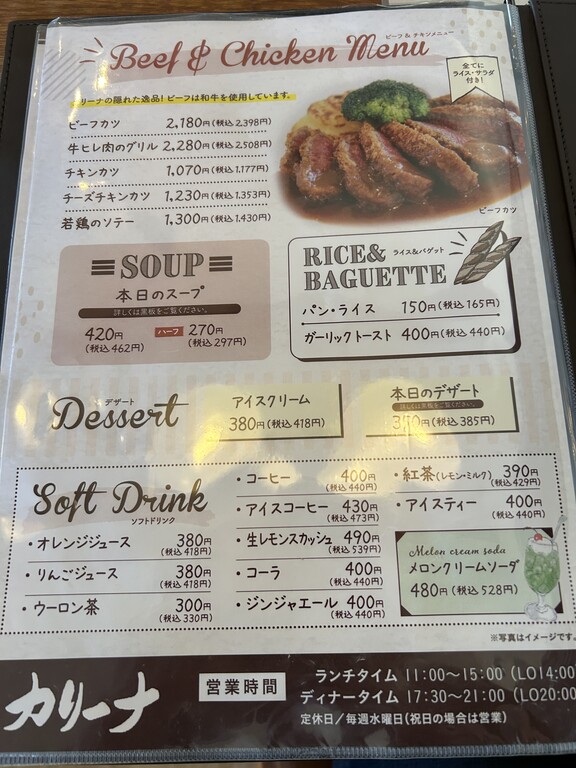 Beef & Chicken Menu
ビーフ & チキンメニュー
全てに
ライス・サラダ
付き!
カリーナの隠れた逸品! ビーフは和牛を使用しています。
ビーフカツ 2,180円(税込2,398円)
牛ヒレ肉のグリル 2,280円(税込2,508円)
チキンカツ 1,070円(税込1,177円)
チーズチキンカツ 1,230円(税込1,353円)
若鶏のソテー 1,300円(税込1,430円)
ビーフカツ
SOUP
本日のスープ
詳しくは黒板をご覧ください。
420円 ハーフ 270円
(税込462円) (税込297円)
RICE& ライス&バゲット
BAGUETTE
パン・ライス 150円(税込165円)
ガーリックトースト 400円(税込440円)
デザート
Dessert
アイスクリーム
380円(税込418円)
本日のデザート
詳しくは黒板をご覧ください。
350円(税込385円)
Soft Drink
ソフトドリンク
・オレンジジュース 380円
(税込418円)
・りんごジュース 380円
(税込418円)
・ウーロン茶 300円
(税込330円)
・コーヒー 400円
(税込440円)
・アイスコーヒー 430円
(税込473円)
・生レモンスカッシュ 490円
(税込539円)
・コーラ 400円
(税込440円)
・ジンジャエール 400円
(税込440円)
・紅茶(レモン・ミルク) 390円
(税込429円)
・アイスティー 400円
(税込440円)
Melon cream soda
メロンクリームソーダ
480円(税込528円)
※写真はイメージです。
カリーナ
営業時間
ランチタイム 11:00〜15:00(LO14:00
ディナータイム 17:30〜21:00(LO20:00
定休日/毎週水曜日(祝日の場合は営業)